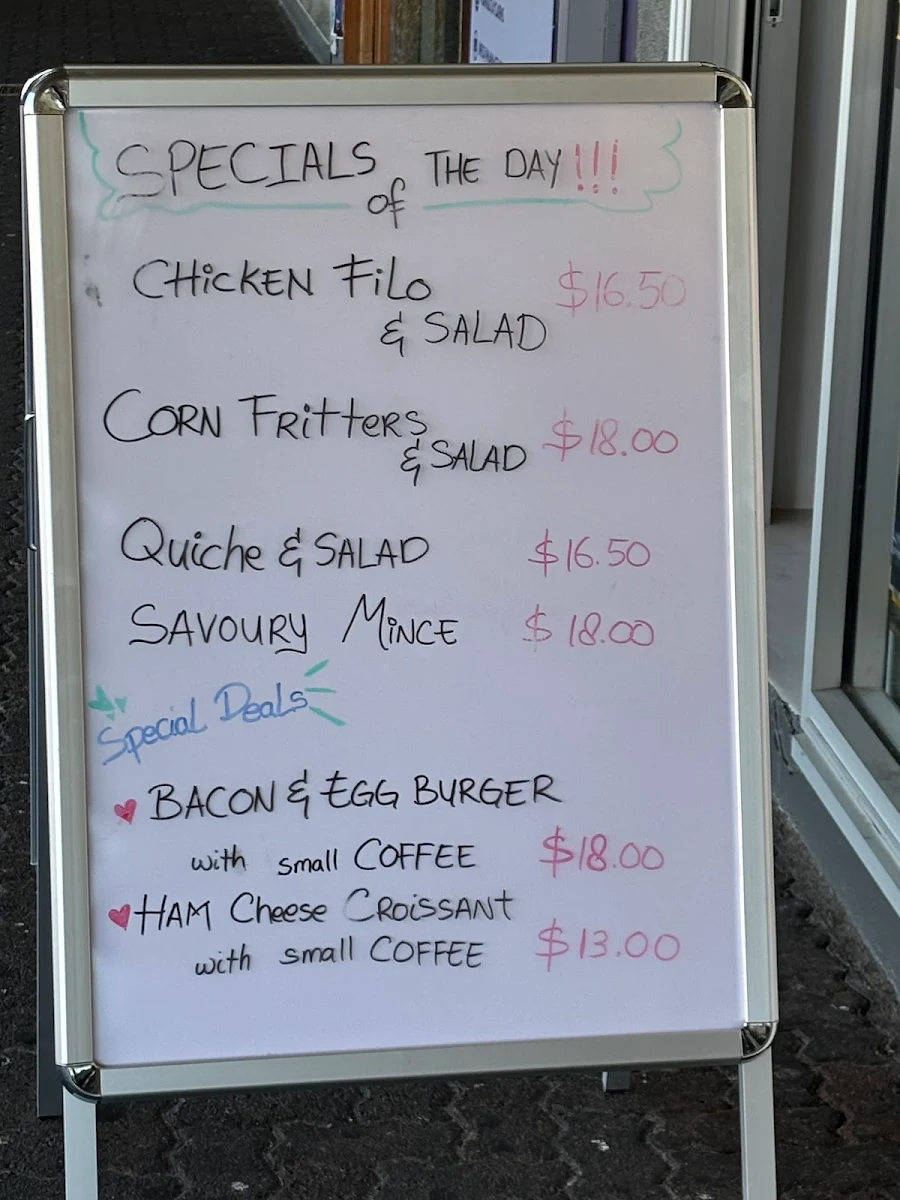 SPECIALS of THE DAY!!!
CHicKEN FiLo $16.50
& SALAD
CORN FRittERS
& SALAD $18.00
Quiche & SALAD $16.50
SAVOURY MiNCE $18.00
Special Deals
BACON & EGG BURGER
with small COFFEE $18.00
HAM Cheese CROiSSANT
with small COFFEE $13.00